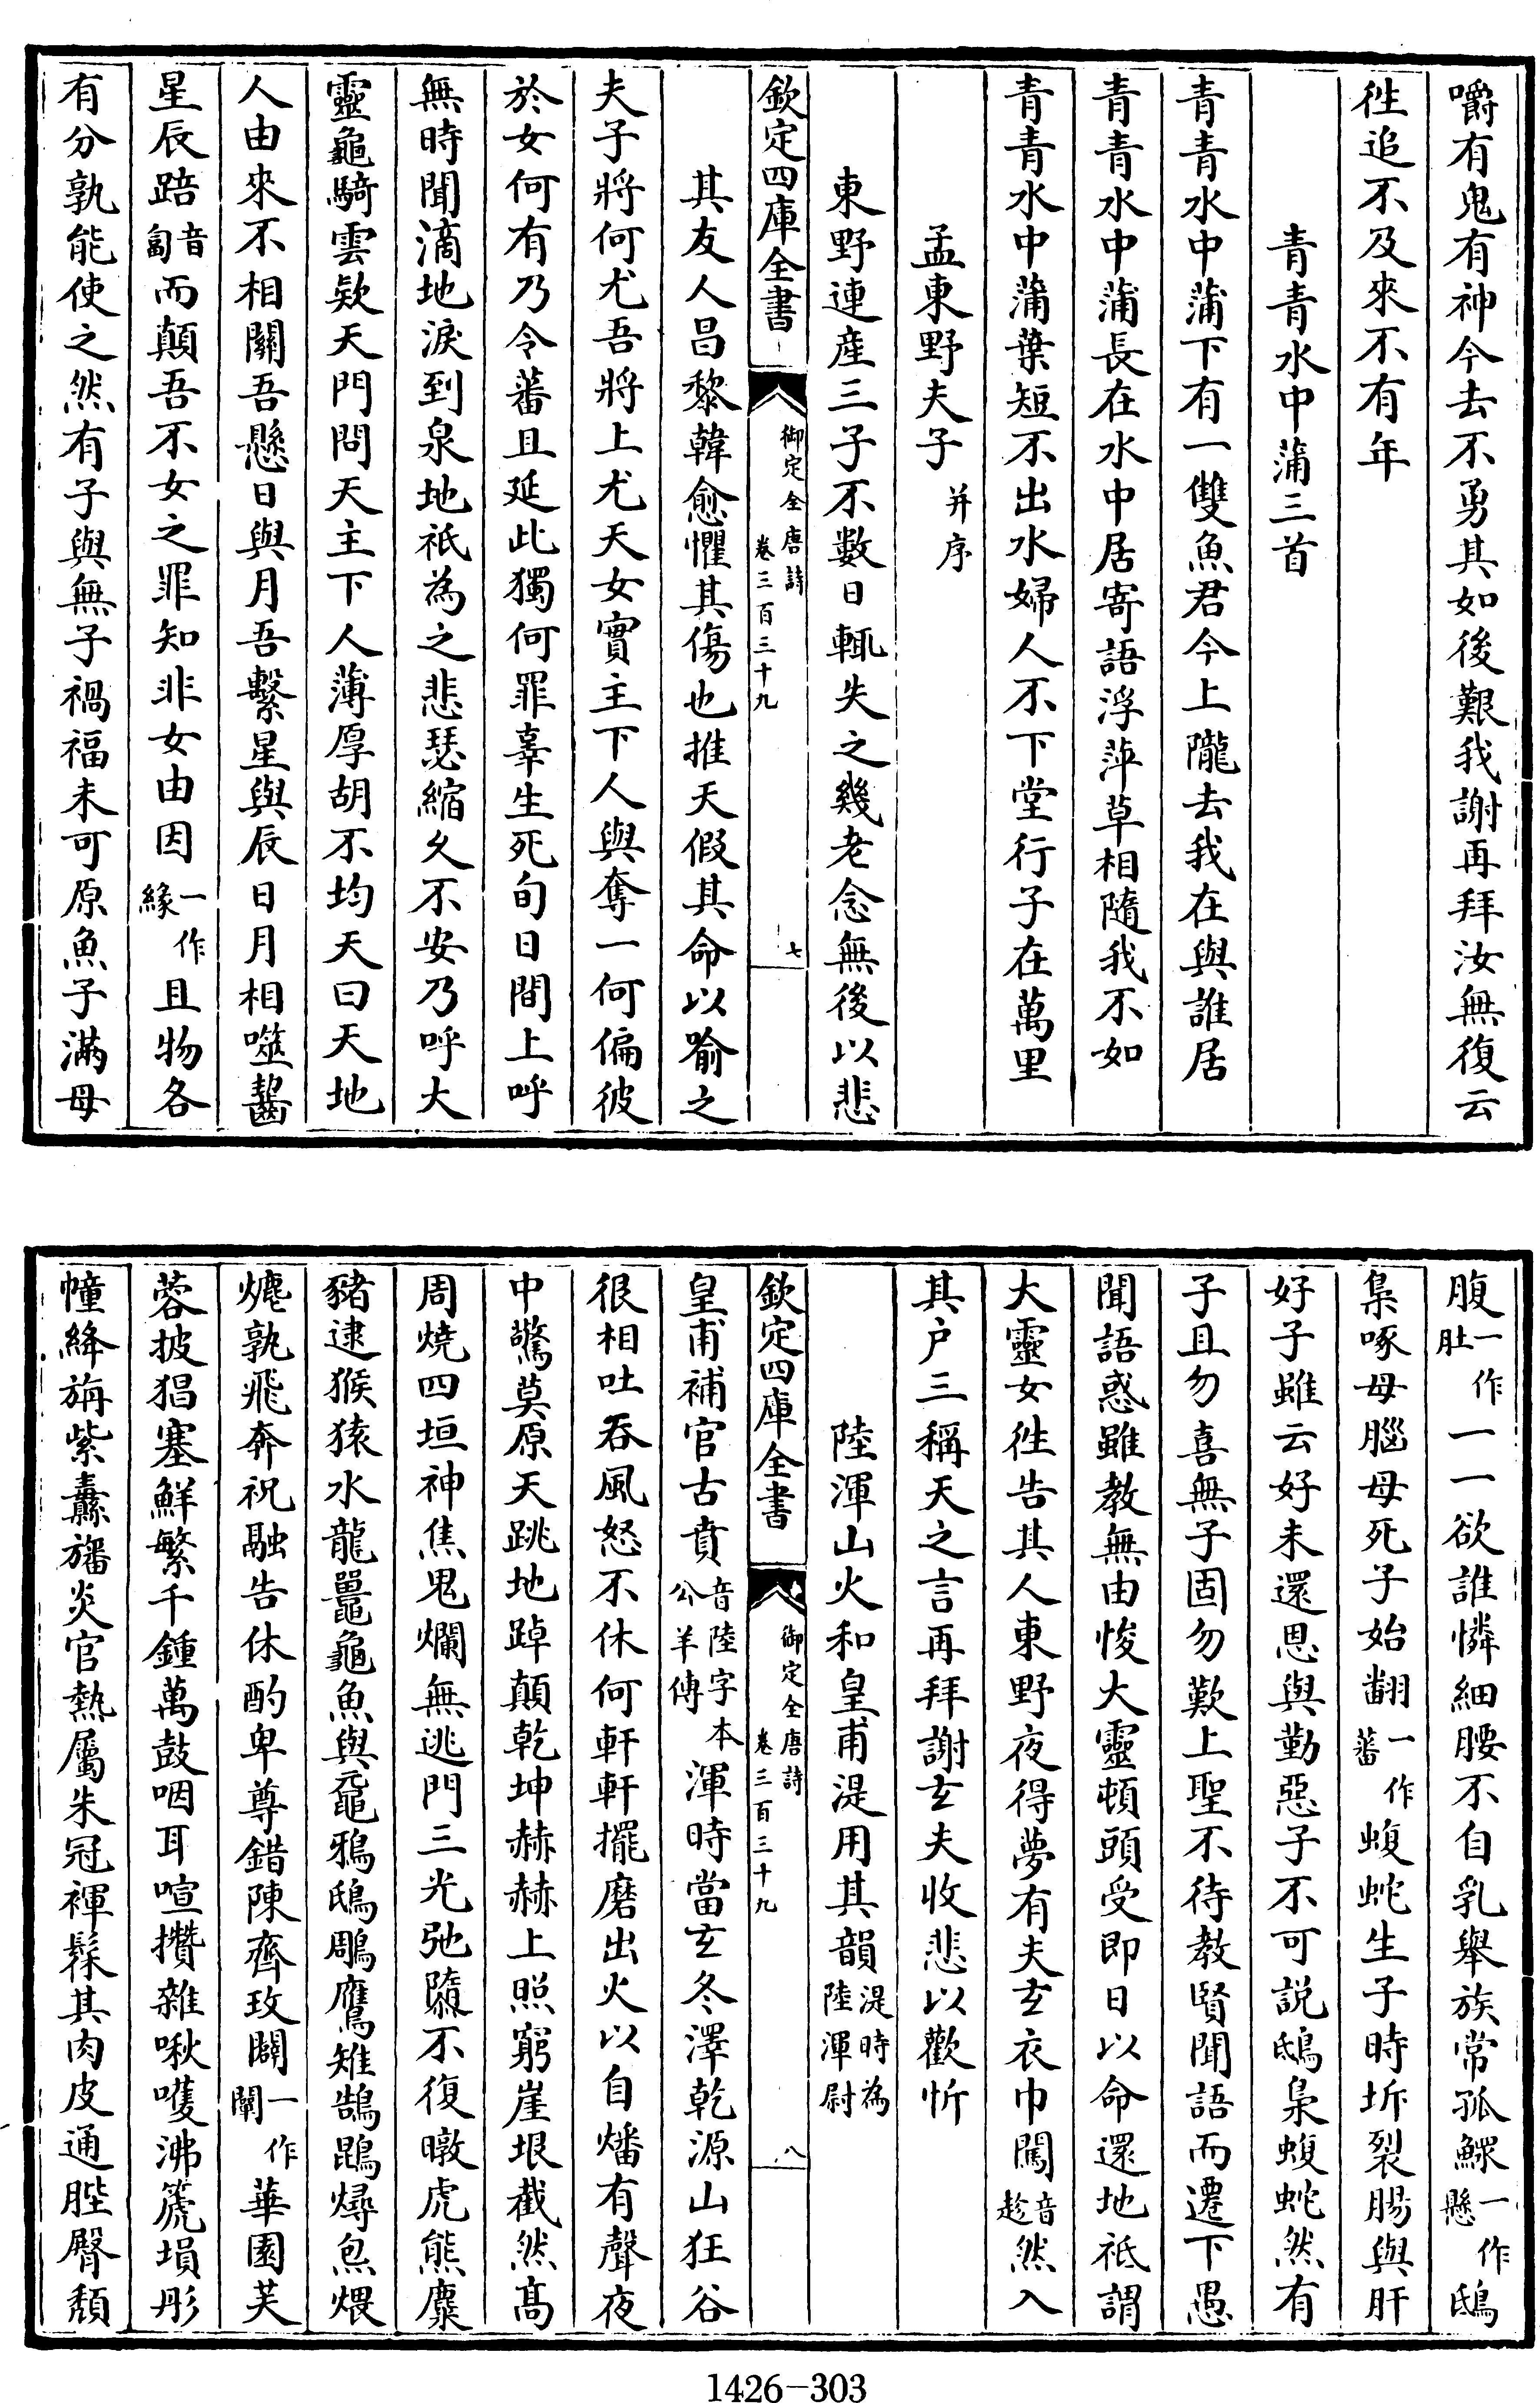 嚼有鬼有神今去不勇其如後艱我謝再拜汝無復云
徃追不及來不有年
青青水中蒲三首
青青水中蒲下有一雙魚君今上隴去我在與誰居
青青水中蒲長在水中居寄語浮萍草相隨我不如
青青水中蒲葉短不出水婦人不下堂行子在萬里
孟東野夫子并序
東野連産三子不數日輒失之幾老念無後以悲
欽定四庫全書 御定全唐詩 卷三百三十九 七
其友人昌黎韓愈懼其傷也推天假其命以喻之
夫子將何尤吾將上尤天女實主下人與奪一何偏彼
於女何有乃令蕃且延此獨何罪辜生死旬日間上呼
無時聞滴地淚到泉地祇為之悲瑟縮久不安乃呼大
靈龜騎雲欵天門問天主下人薄厚胡不均天曰天地
人由來不相關吾懸日與月吾繫星與辰日月相噬齧
星辰踣音匐而顛吾不女之罪知非女由因一作緣且物各
有分孰能使之然有子與無子禍福未可原魚子滿母
腹一作肚一一欲誰憐細腰不自乳舉族常孤鰥一作懸鴟
梟啄母腦母死子始翻一作蕃蝮蛇生子時坼裂腸與肝
好子雖云好未還恩與勤惡子不可説鴟梟蝮蛇然有
子且勿喜無子固勿歎上聖不待教賢聞語而遷下愚
聞語惑雖教無由悛大靈頓頭受即日以命還地祗謂
大靈女徃告其人東野夜得夢有夫玄衣巾闖音趁然入
其户三稱天之言再拜謝玄夫收悲以歡忻
陸渾山火和皇甫湜用其韻湜時為陸渾尉
欽定四庫全書 御定全唐詩 卷三百三十九 八
皇甫補官古賁音陸字本公羊傳渾時當玄冬澤乾源山狂谷
很相吐吞風怒不休何軒軒擺磨出火以自燔有聲夜
中驚莫原天跳地踔顛乾坤赫赫上照窮崖垠截然髙
周燒四垣神焦鬼爛無逃門三光弛隳不復暾虎熊麋
豬逮猴猿水龍鼉龜魚與黿鴉鴟鵰鷹雉鵠鵾燖炰煨
爊孰飛奔祝融告休酌卑尊錯陳齊玫闢一作闡華園芙
蓉披猖塞鮮繁千鍾萬鼓咽耳喧攢雜啾嚄沸篪塤彤
幢絳旃紫纛旛炎官熱屬朱冠褌髹其肉皮通䏶臀頽
1426-303